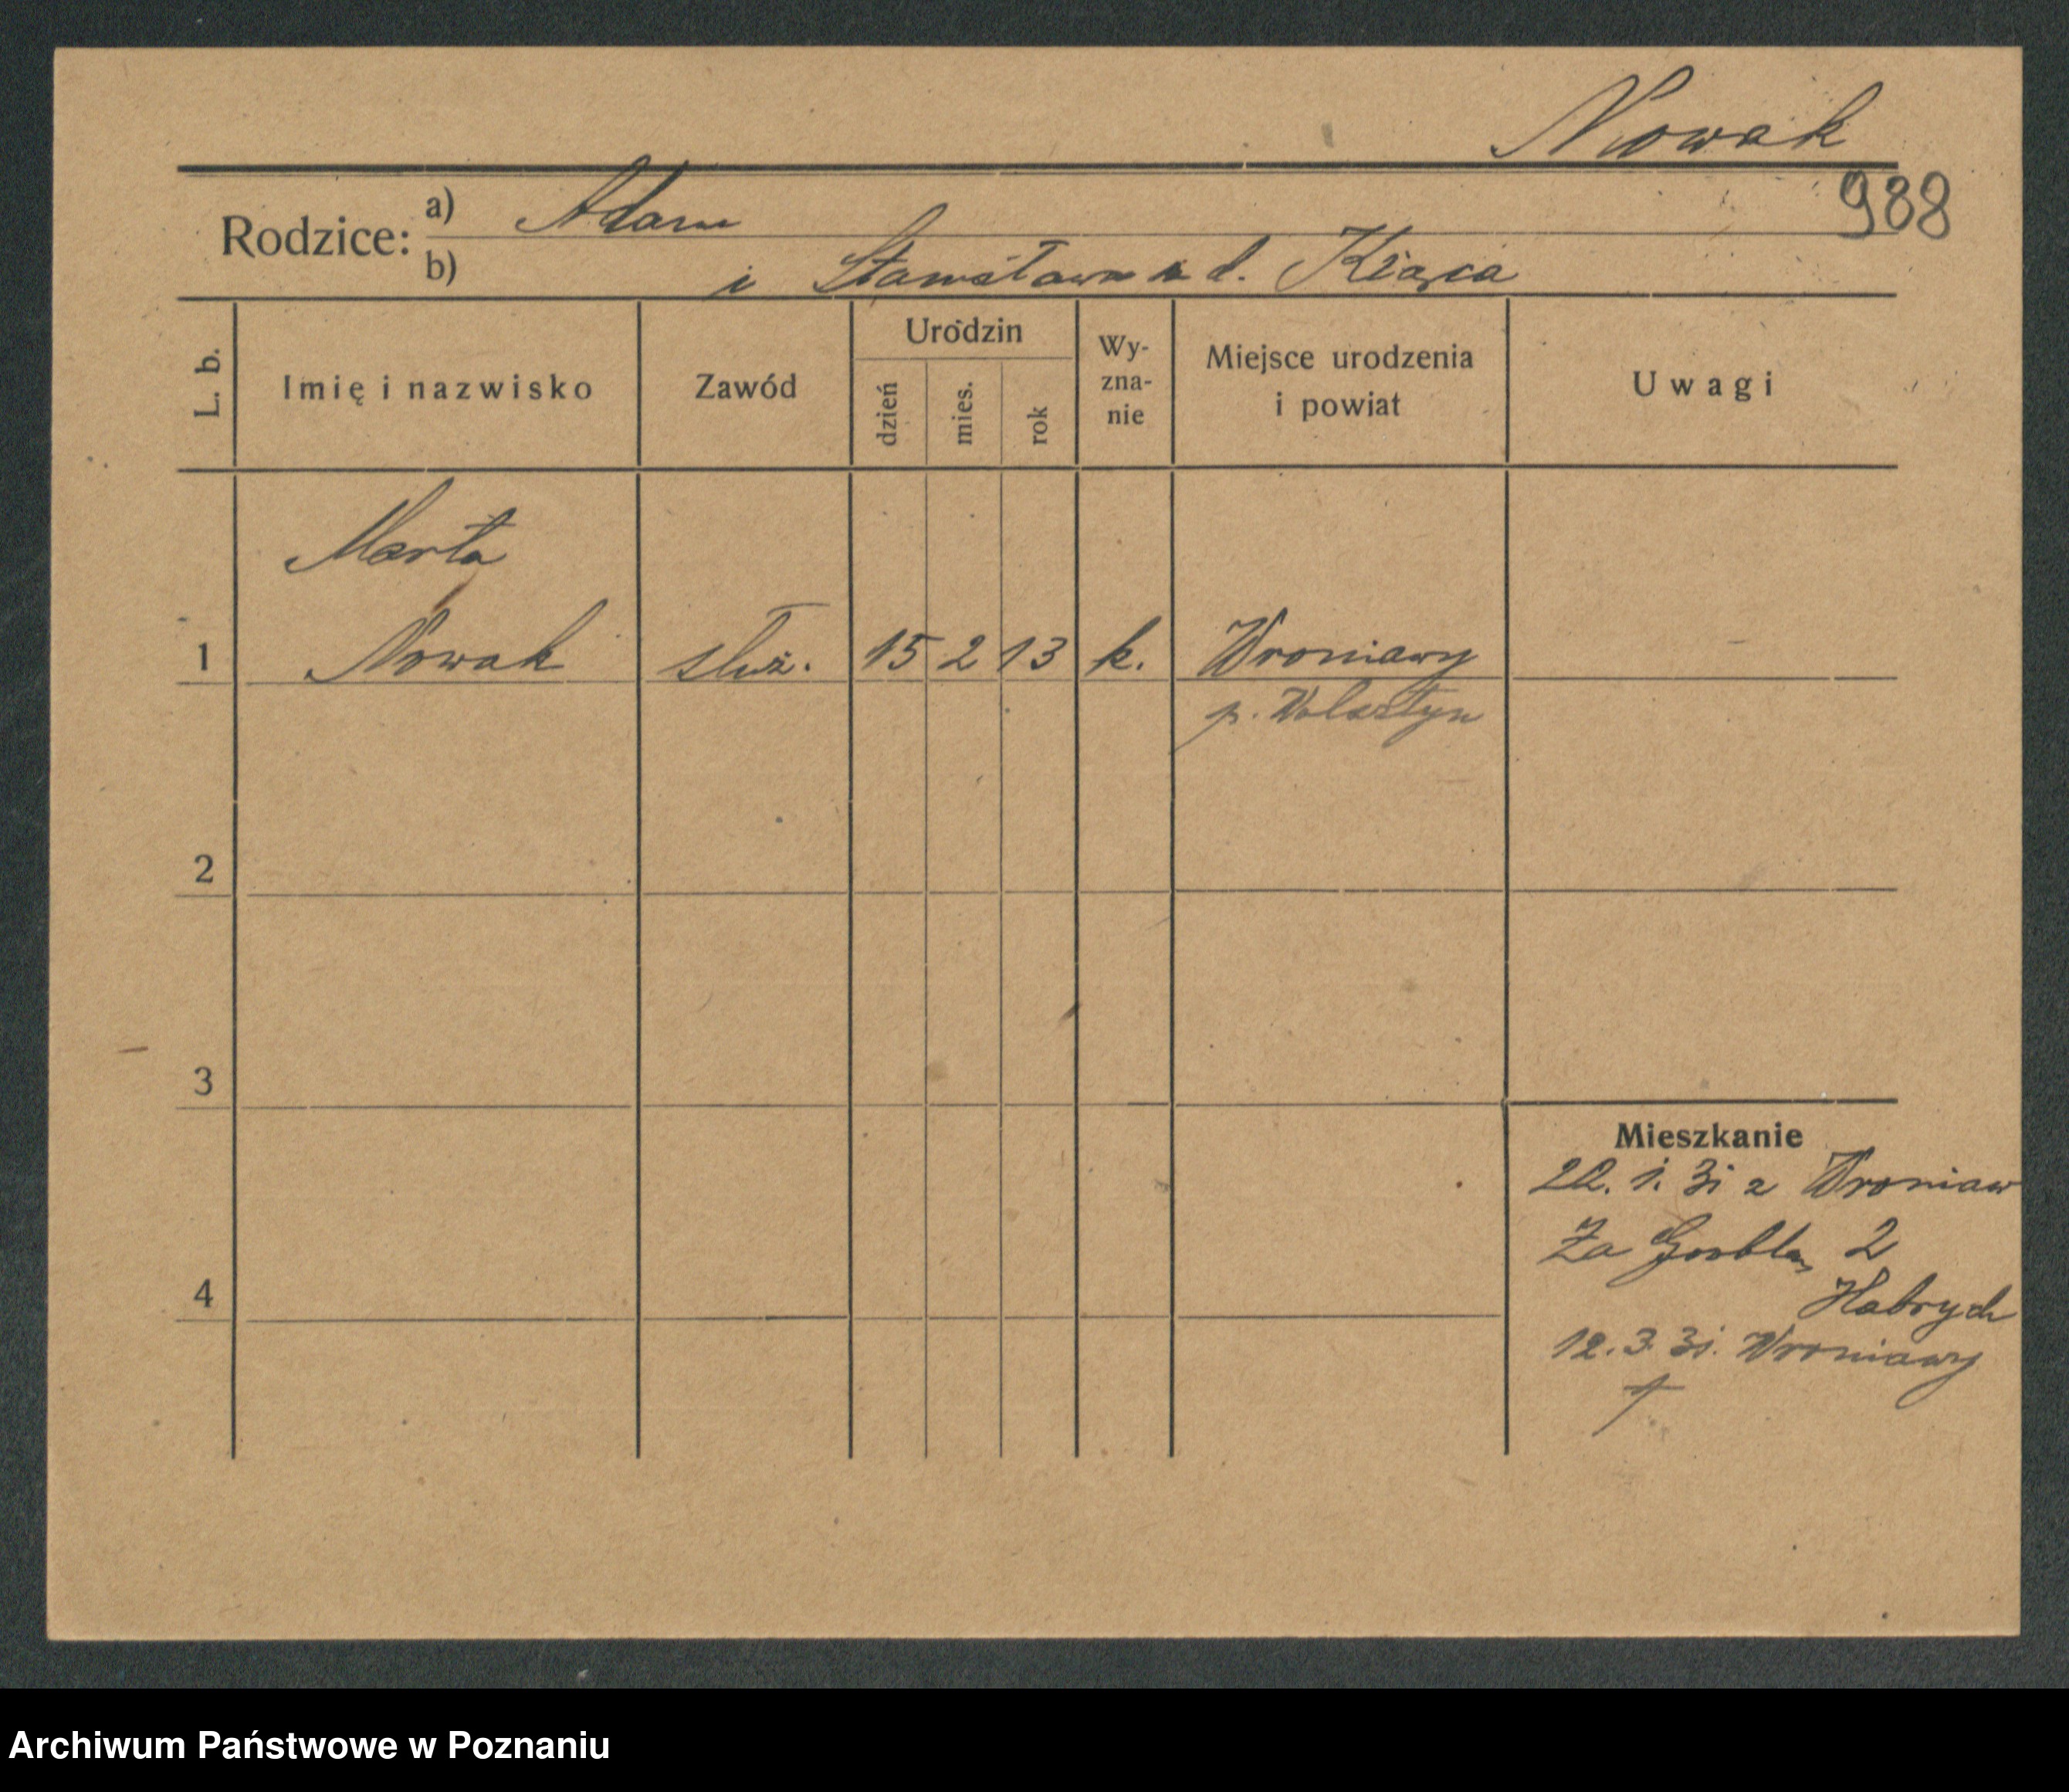 Nowak
988
Rodzice: a) Adam
b) i Stanisława d. Kiąca
L. b.
Imię i nazwisko
Zawód
Urodzin
dzień
mies.
rok
Wy-
zna-
nie
Miejsce urodzenia
i powiat
Uwagi
Marta
1 Nowak służ. 15 2 13 k. Wroniawy
p. Wolsztyn
2
3
4
Mieszkanie
22. 1. 31 z Wroniaw
Za Groblą 2
Habrych
12. 3. 31. Wroniawy
Archiwum Państwowe w Poznaniu